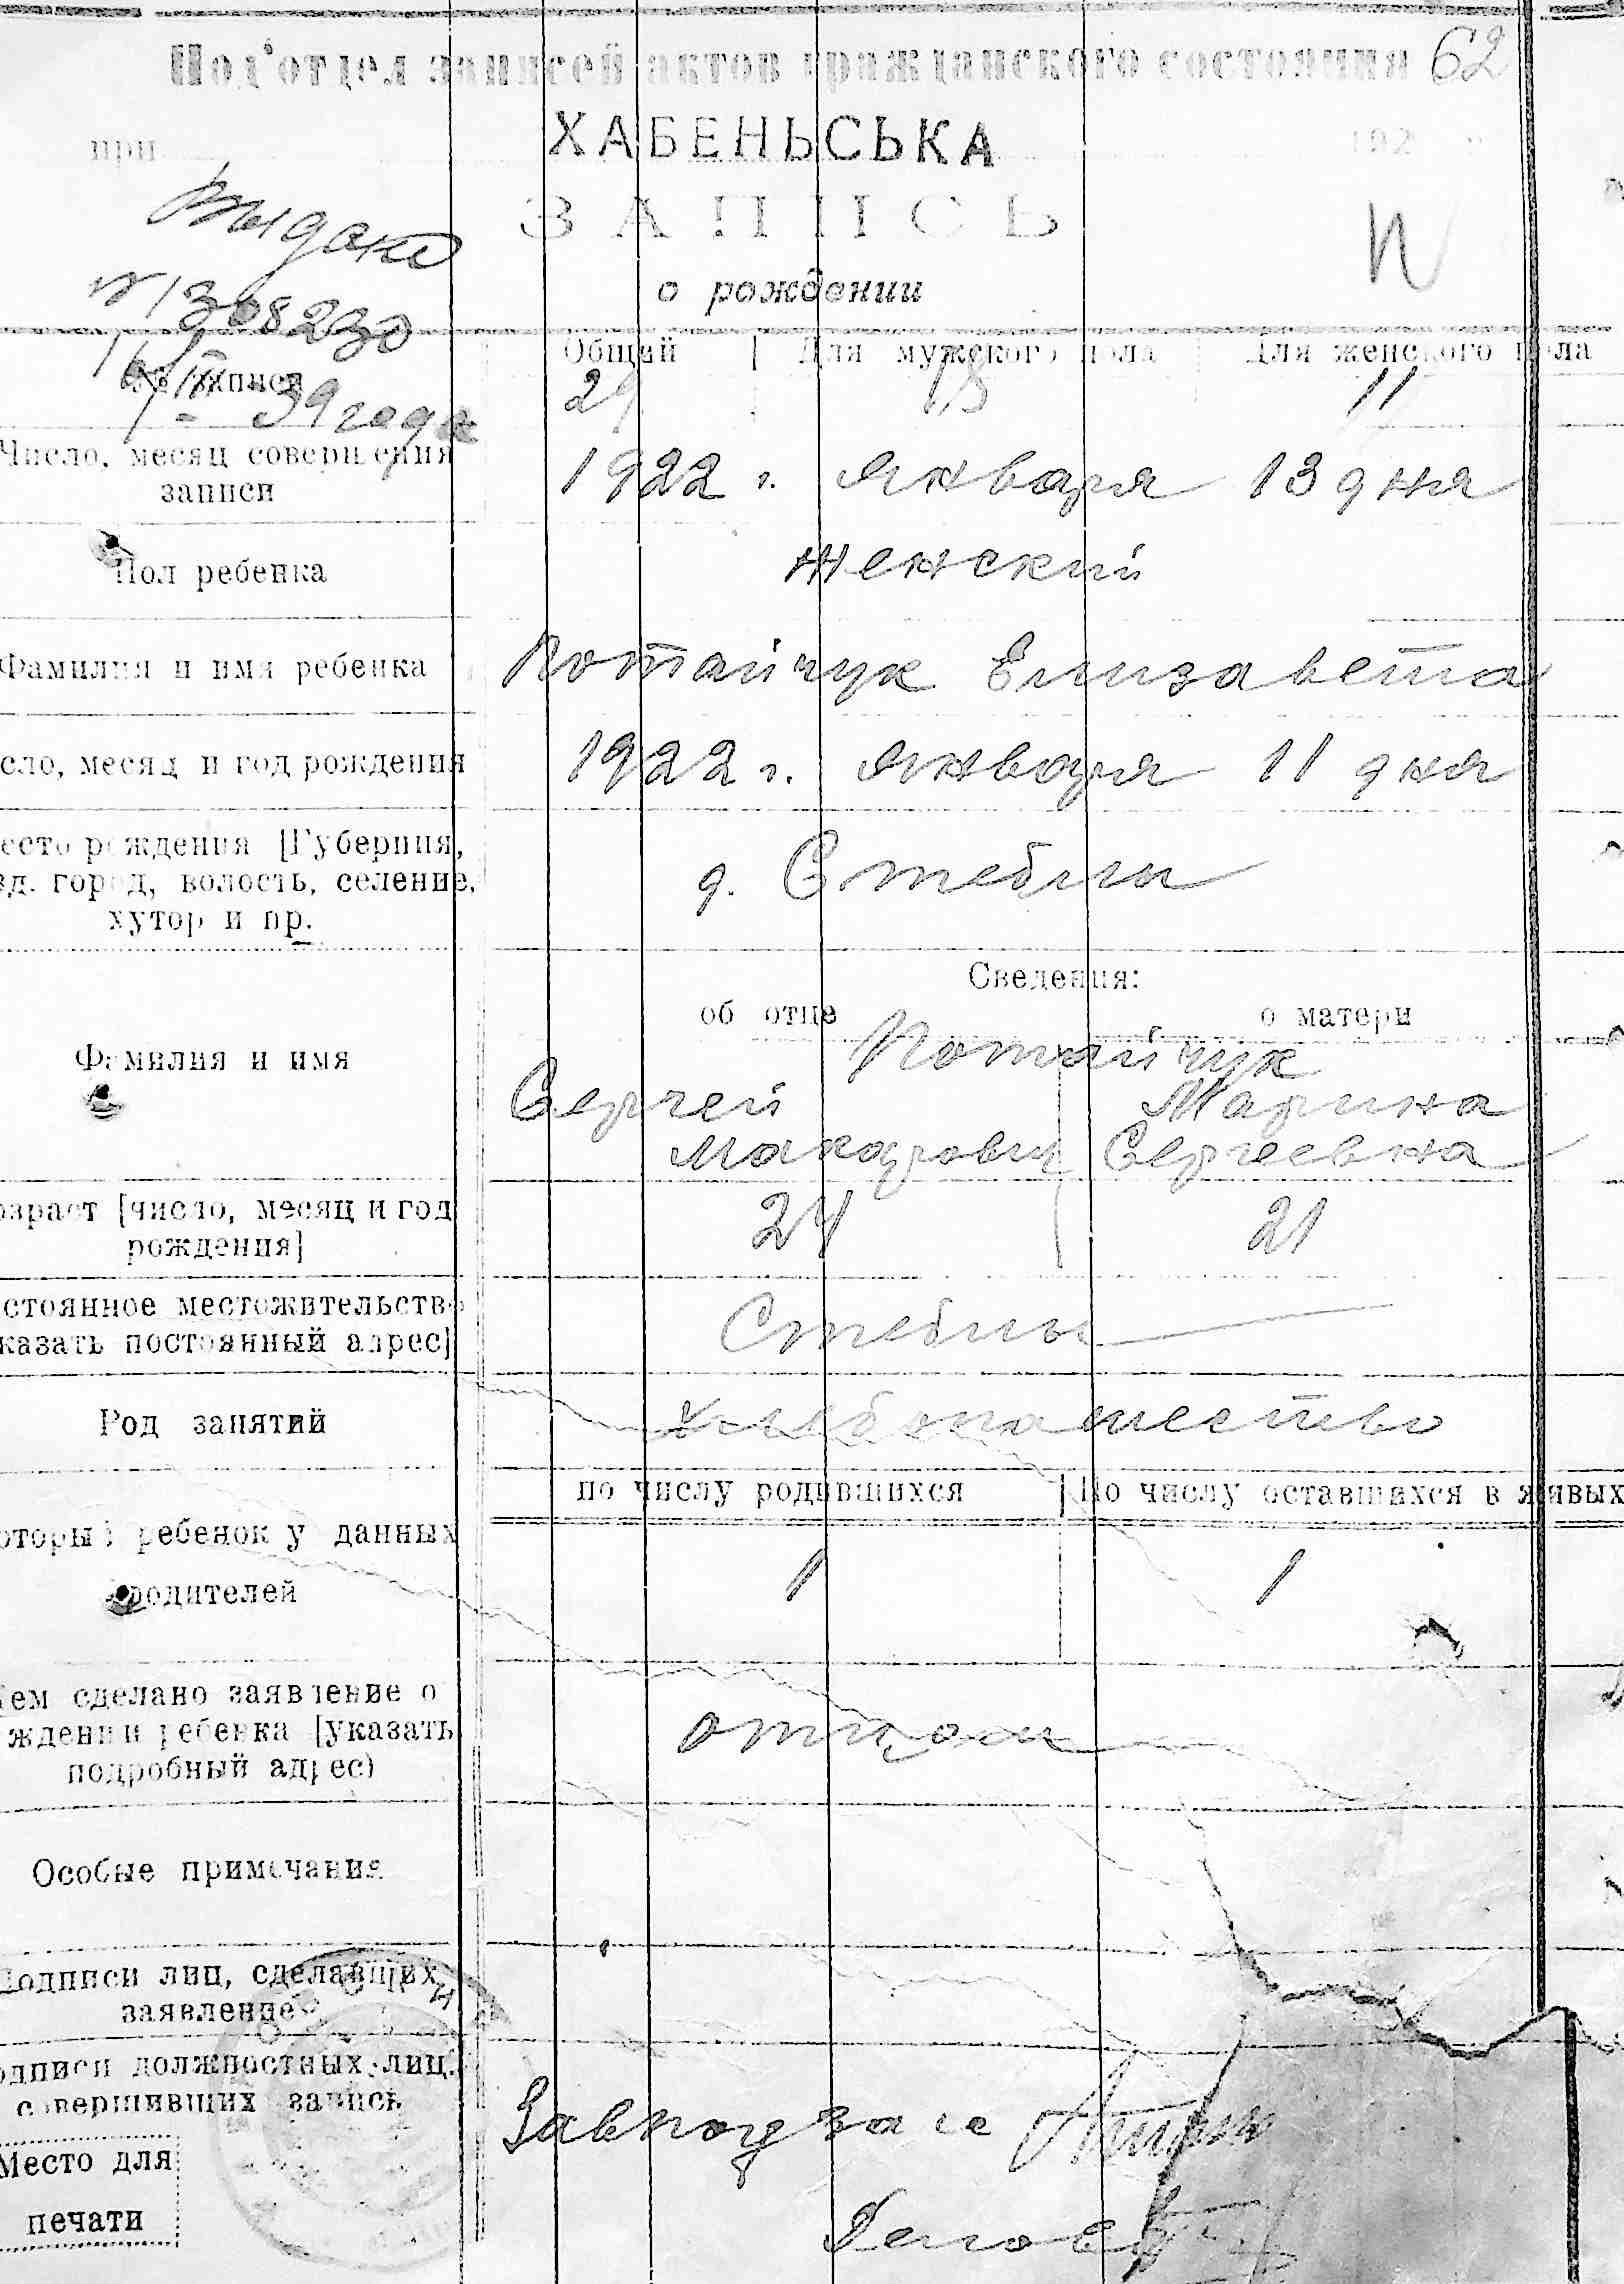 Под'отдел записей актов гражданского состояния 62
при ХАБЕНЬСЬКА 192
Выдано
ЗАПИСЬ
№ 308230
о рождении
Общий Для мужского пола Для женского пола
записи 29 18 11
39 года
Число, месяц совершения
записи
1922 г. января 13 дня
Пол ребенка женский
Фамилия и имя ребенка Потайчук Елизавета
сло, месяц и год рождения 1922 г. января 11 дня
есто рождения [Губерния,
зд. город, волость, селение,
хутор и пр.
д. Стеблы
Сведения:
об отце о матери
Фамилия и имя Потайчук
Сергей Марина
Макарович Сергеевна
озраст [число, месяц и год
рождения]
24 21
стоянное местожительство
казать постоянный адрес]
Стеблы
Род занятий хлебопашество
по числу родившихся По числу оставшихся в живых
оторый ребенок у данных
родителей
1 1
ем сделано заявление о
ждении ребенка [указать
подробный адрес)
отцом
Особые примечания
Подписи лиц, сделавших
заявление
одписи должностных лиц,
совершивших запись
Завподзагс
Место для
печати
Делов